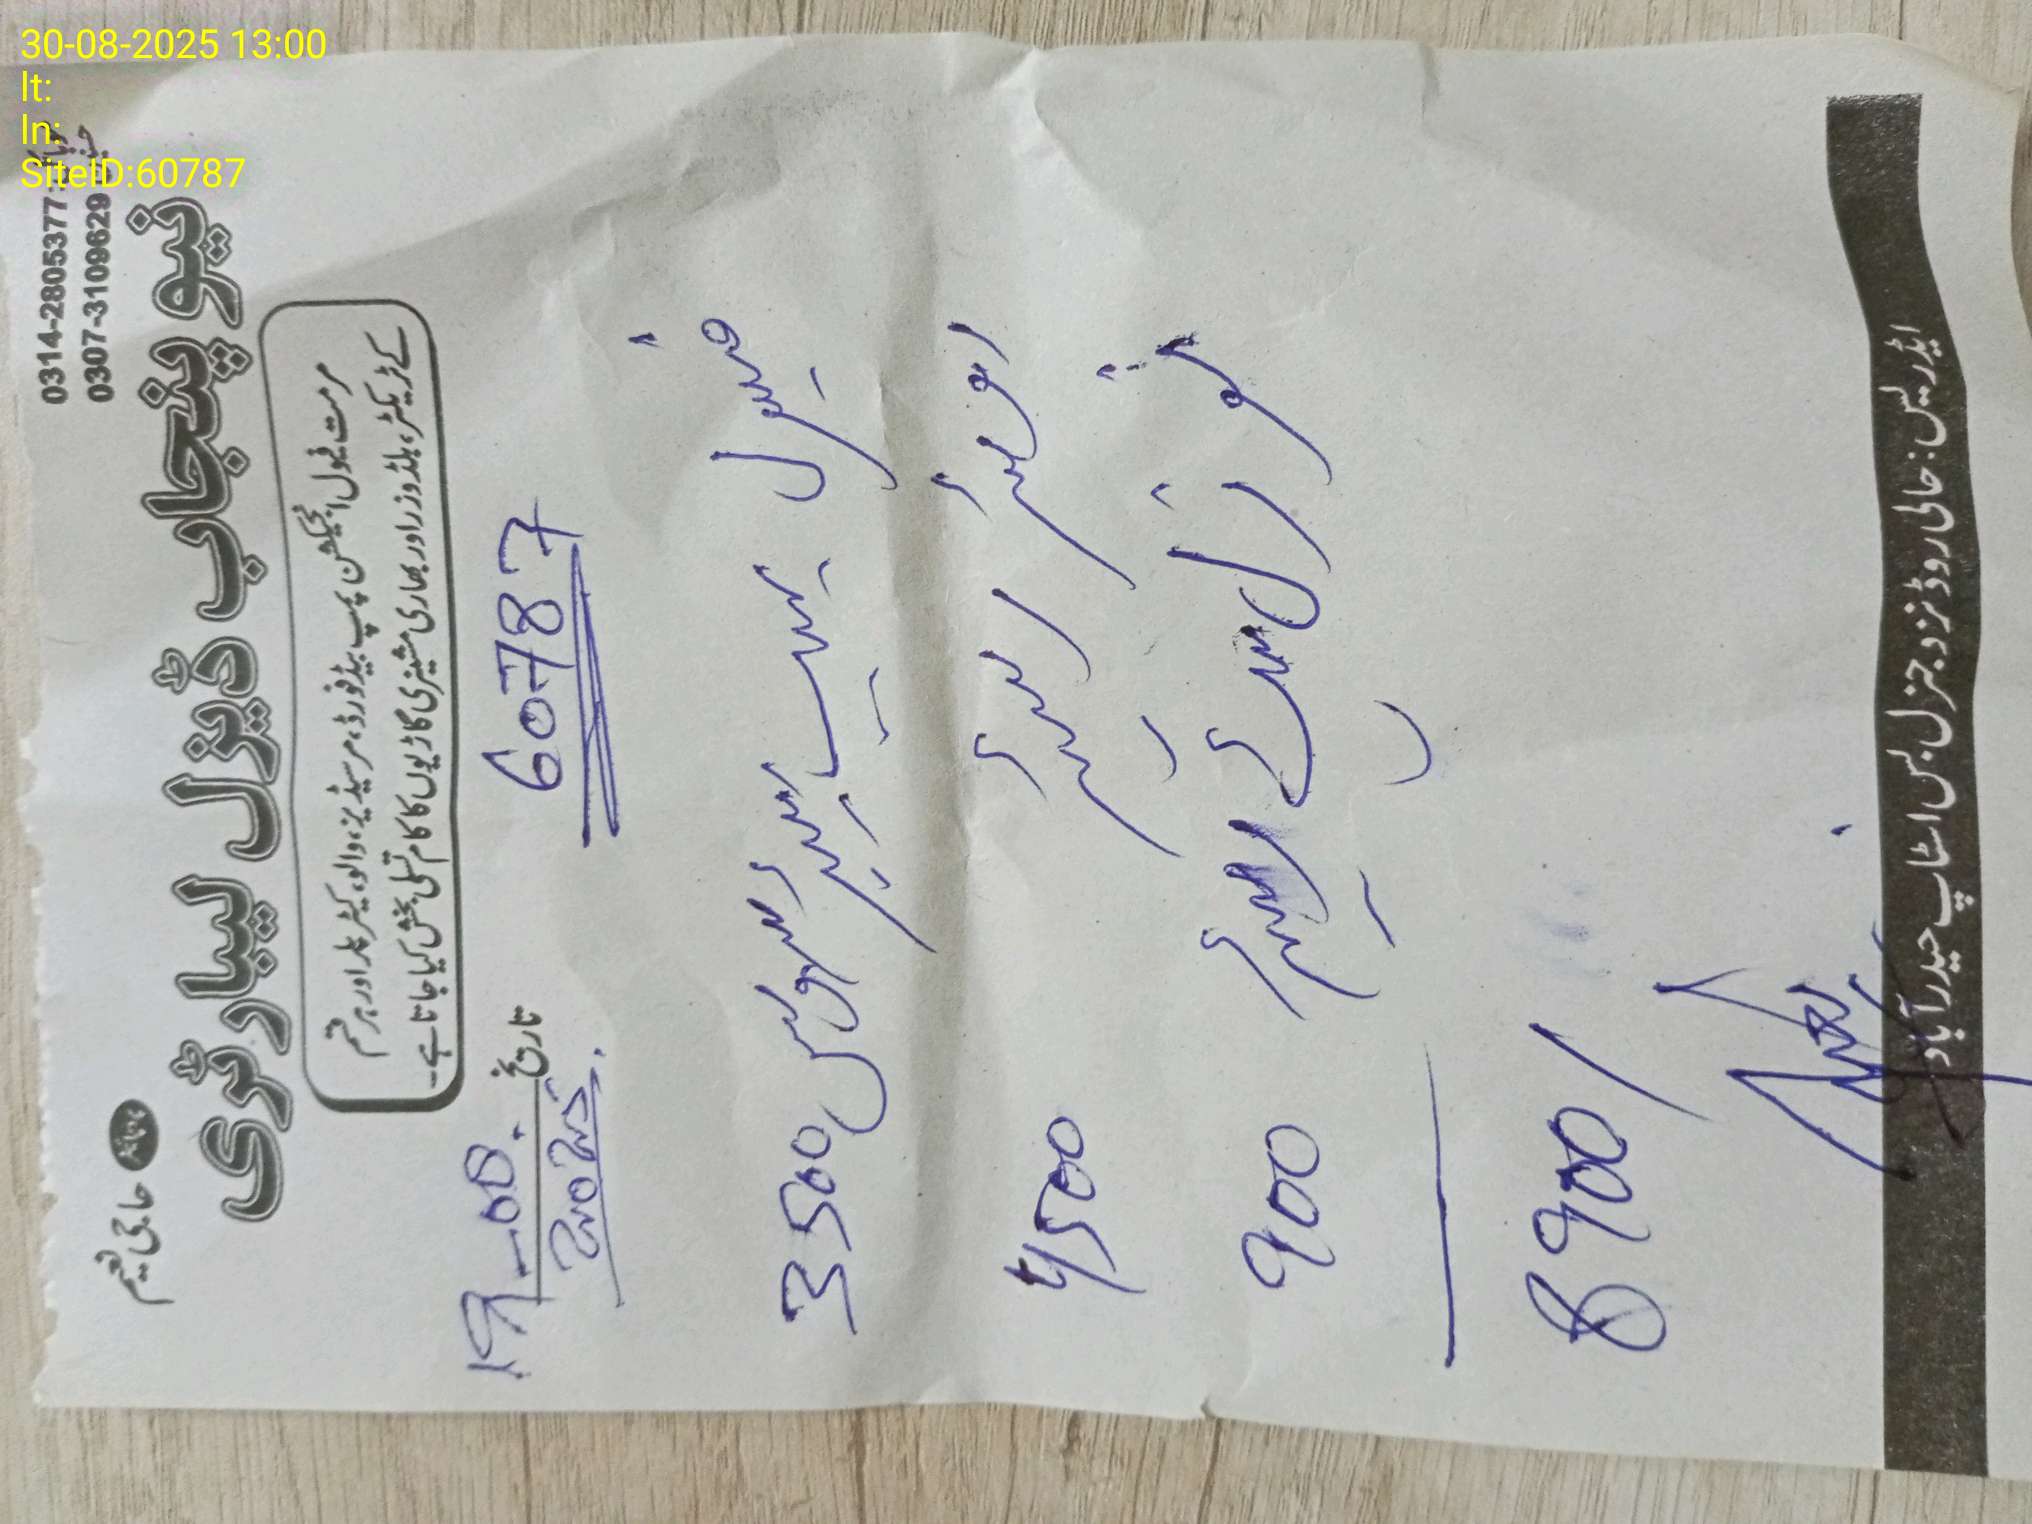 30-08-2025 13:00
lt:
ln:
SiteID:60787
0314-2805377
0307-3109629
حاجی نعیم
نیو پنجاب ڈیزل لیبارٹری
مرمت فیول انجیکشن پمپ بیڈفورڈ، مرسیڈیز، والو، کیٹرپلر اور ہر قسم
کے ٹریکٹر، بلڈوزر اور بھاری مشینری گاڑیوں کا کام تسلی بخش کیا جاتا ہے۔
60787
تاریخ 19-08-2025
فیول پمپ سروس 3500
4500
نوزل 900
8900/
ایڈریس: حالی روڈ نزد جنرل بس اسٹاپ حیدرآباد